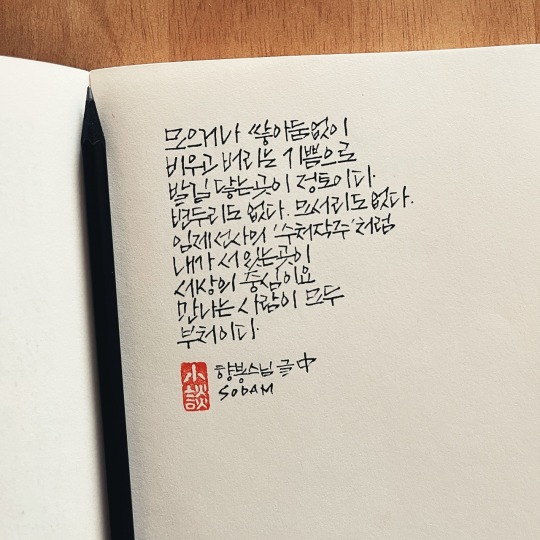 모으거나 쌓아둠없이
비우고 버리는 기쁨으로
발길 닿는곳이 정토이다.
변두리도 없다. 모서리도 없다.
임제선사의 '수처작주'처럼
내가 서있는곳이
세상의 중심이요
만나는 사람이 모두
부처이다.
小談
향봉스님 글 中
SODAM